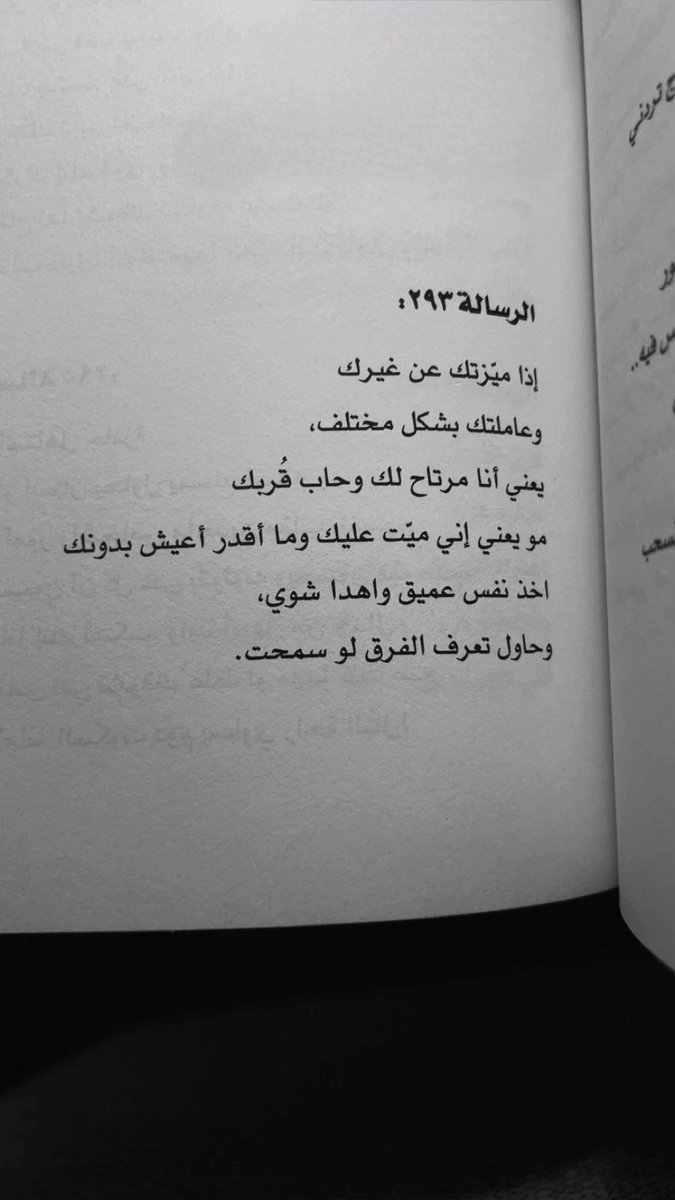 الرسالة ٢٩٣:
إذا ميّزتك عن غيرك
وعاملتك بشكل مختلف،
يعني أنا مرتاح لك وحاب قُربك
مو يعني إني ميّت عليك وما أقدر أعيش بدونك
اخذ نفس عميق واهدا شوي،
وحاول تعرف الفرق لو سمحت.
تردني
فيه..